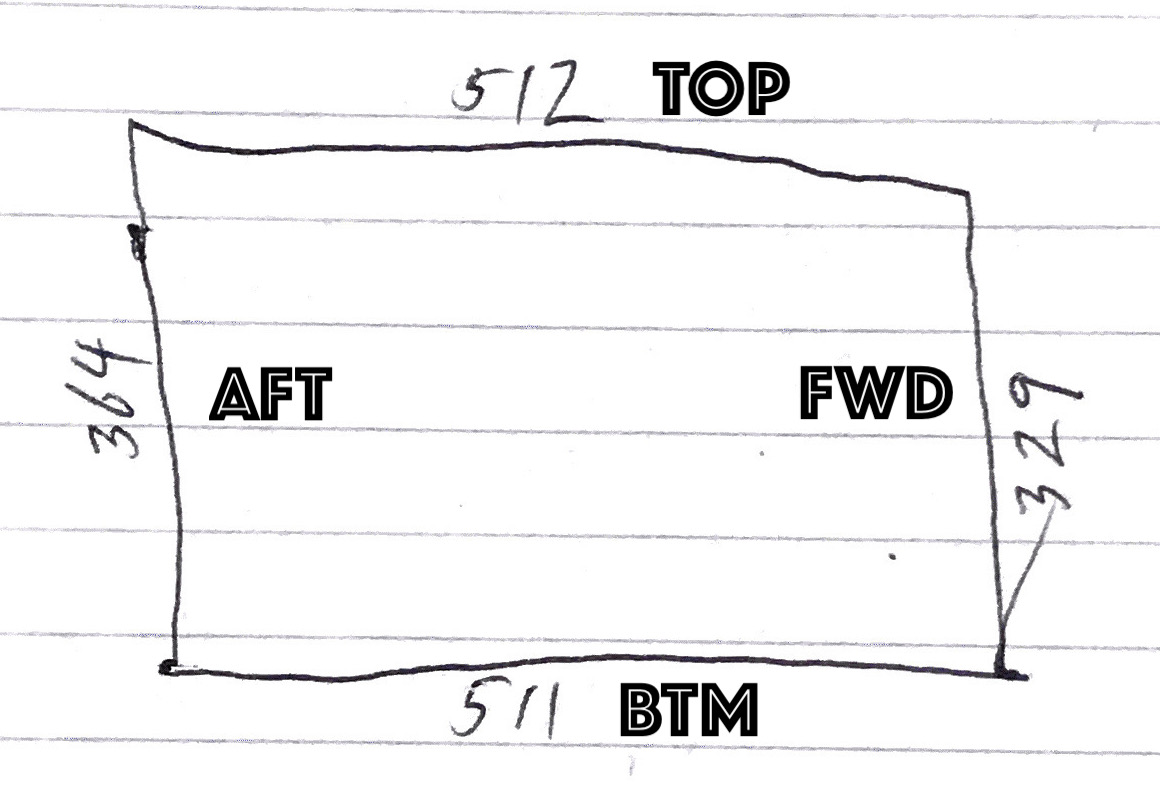 512 TOP
364 AFT FWD 329
511 BTM